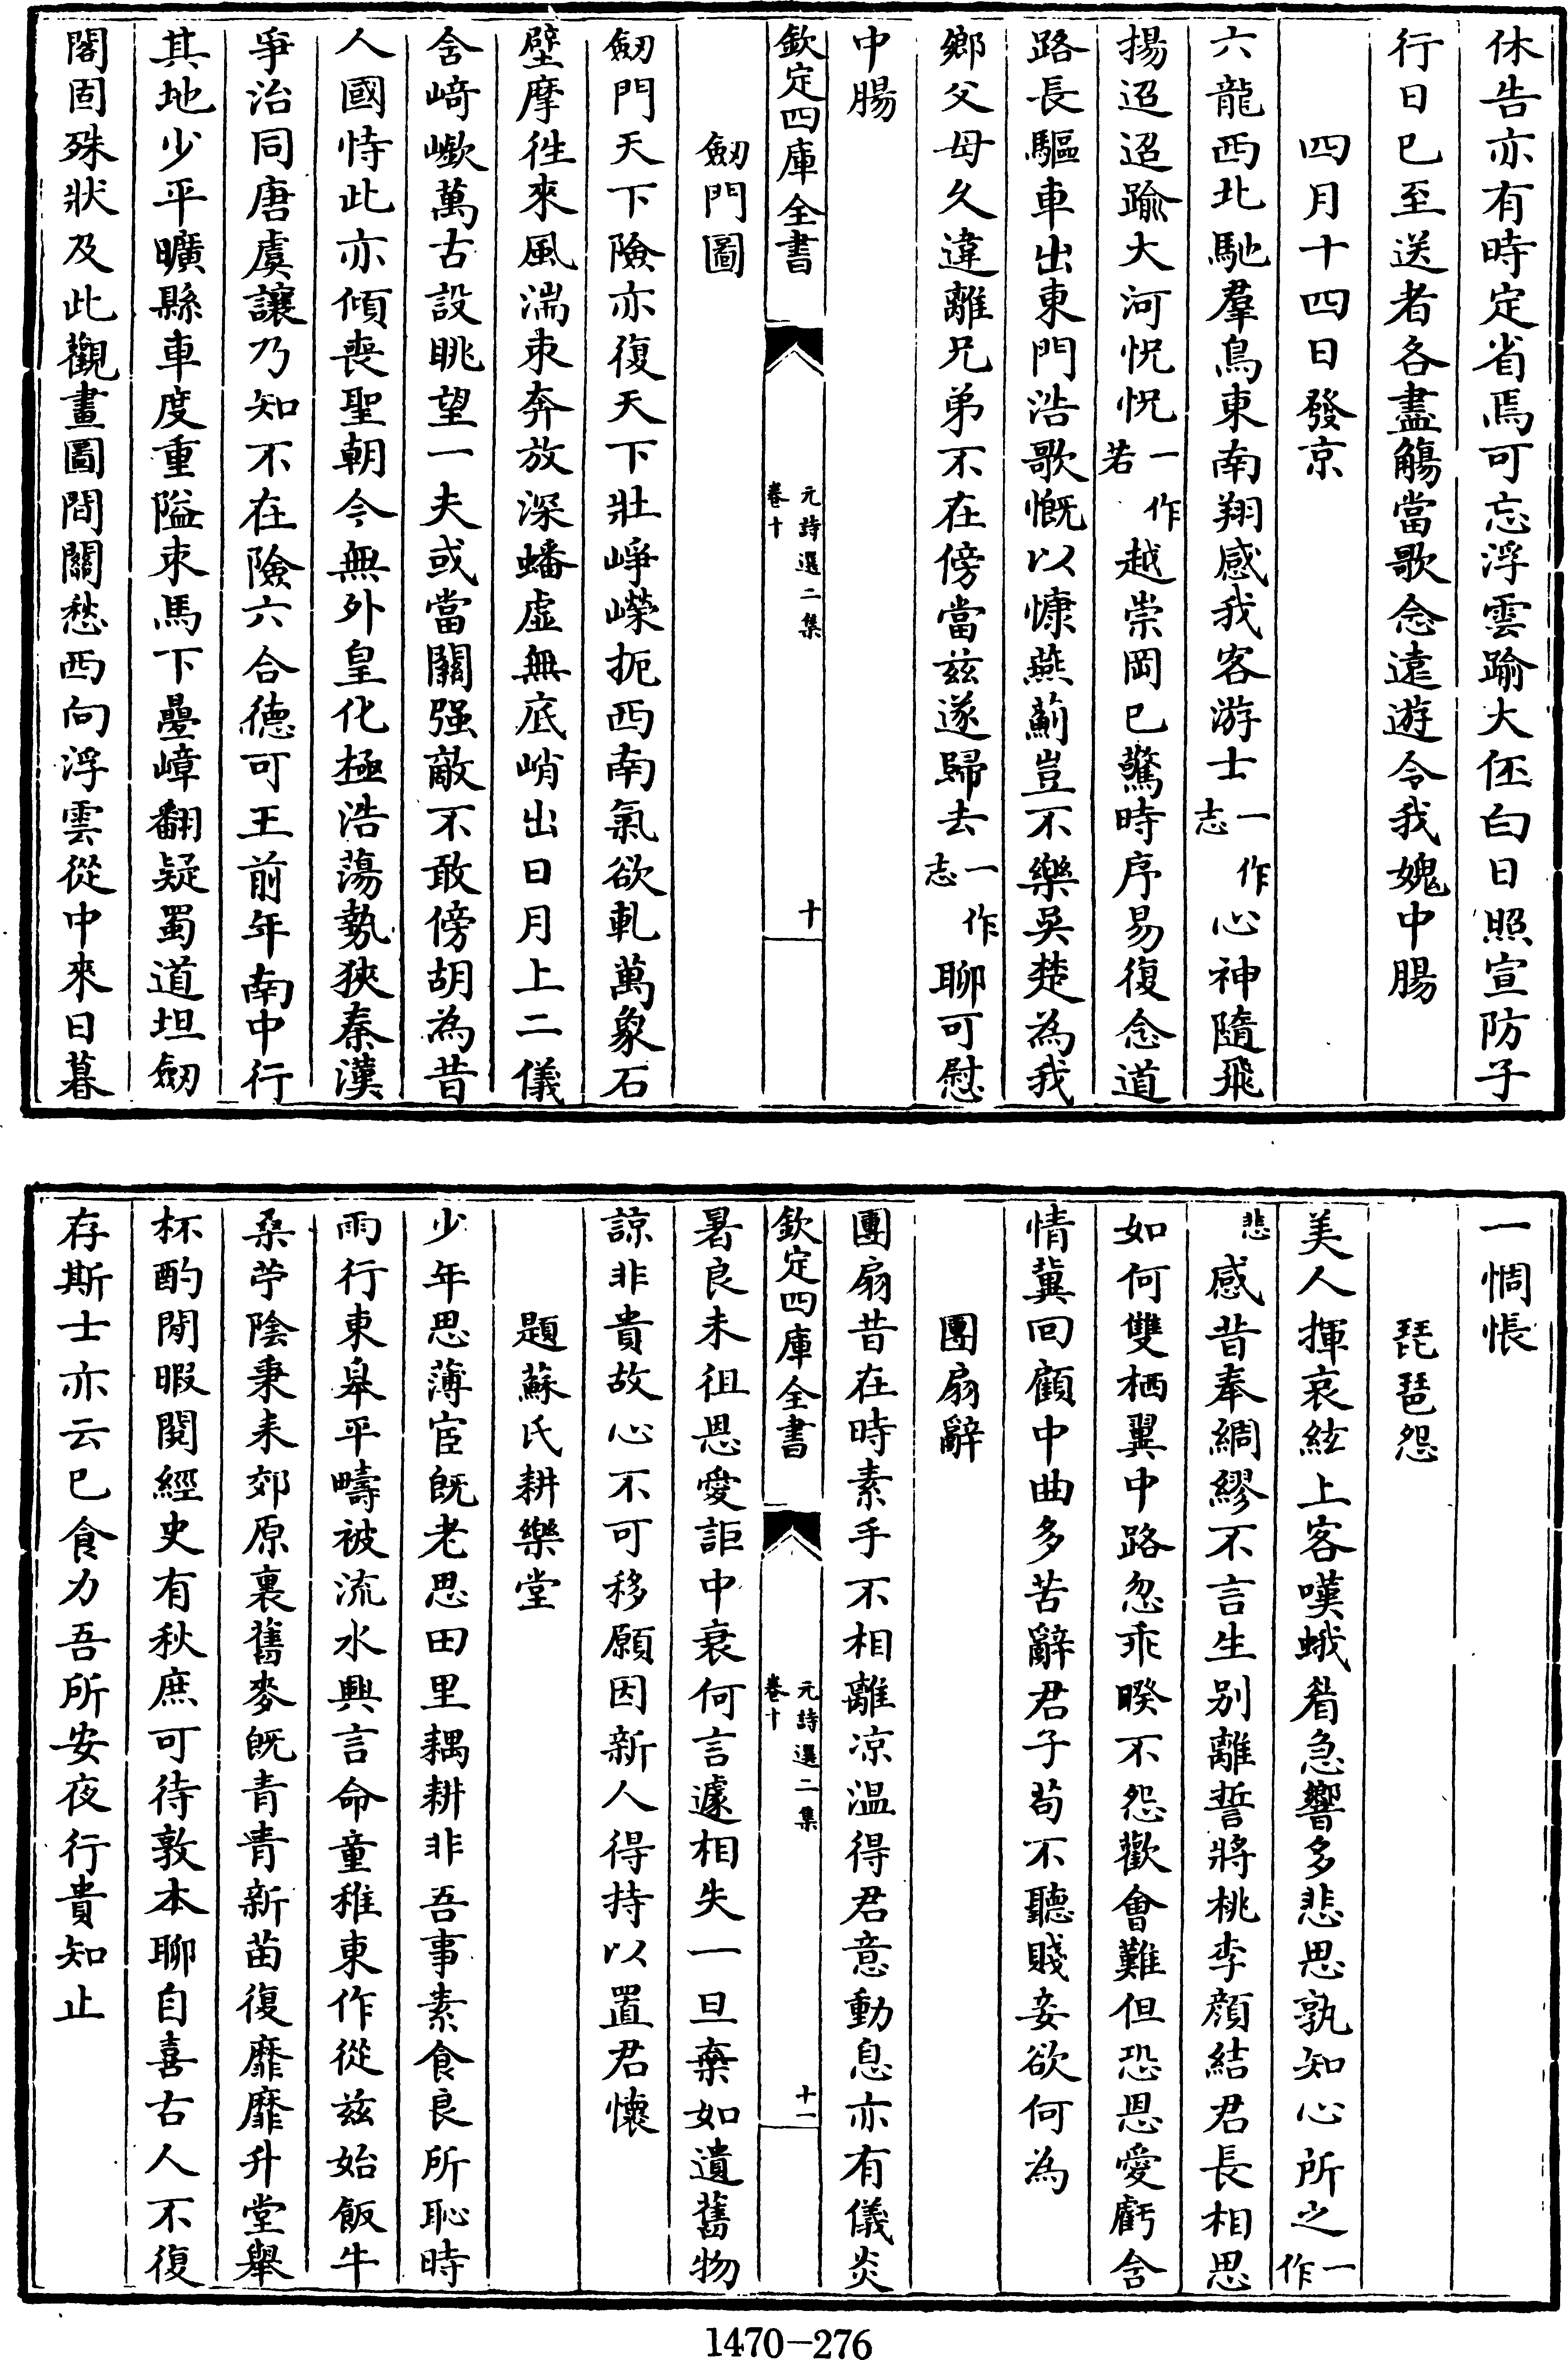 休告亦有時定省焉可忘浮雲踰大伾白日照宣防子
行日已至送者各盡觴當歌念遠遊令我媿中腸
四月十四日發京
六龍西北馳羣鳥東南翔感我客游士一作志心神隨飛
揚迢迢踰大河怳怳一作若越崇岡已驚時序易復念道
路長驅車出東門浩歌慨以慷燕薊豈不樂吳楚為我
鄉父母久違離兄弟不在傍當兹遂歸去一作志聊可慰
中腸
欽定四庫全書 元詩選二集 卷十 十
劒門圖
劒門天下險亦復天下壯崢嶸扼西南氣欲軋萬象石
壁摩徃來風湍束奔放深蟠虛無底峭出日月上二儀
含﨑嶔萬古設眺望一夫或當關强敵不敢傍胡為昔
人國恃此亦傾喪聖朝今無外皇化極浩蕩勢狹秦漢
爭治同唐虞讓乃知不在險六合德可王前年南中行
其地少平曠縣車度重隘束馬下疊嶂翻疑蜀道坦劒
閣固殊狀及此觀畫圖間關愁西向浮雲從中來日暮
一惆悵
琵琶怨
美人揮哀絃上客嘆蛾眉急響多悲思孰知心所之一作
悲感昔奉綢繆不言生别離誓將桃李顔結君長相思
如何雙栖翼中路忽乖暌不怨歡會難但恐恩愛虧含
情冀回顧中曲多苦辭君子苟不聽賤妾欲何為
團扇辭
團扇昔在時素手不相離凉温得君意動息亦有儀炎
欽定四庫全書 元詩選二集 卷十 十一
暑良未徂恩愛詎中衰何言遽相失一旦棄如遺舊物
諒非貴故心不可移願因新人得持以置君懷
題蘇氏耕樂堂
少年思薄宦旣老思田里耦耕非吾事素食良所恥時
雨行東臯平疇被流水興言命童稚東作從兹始飯牛
桑苧陰秉耒郊原裏舊麥旣青青新苗復靡靡升堂舉
杯酌閒暇閱經史有秋庶可待敦本聊自喜古人不復
存斯士亦云已食力吾所安夜行貴知止
1470-276